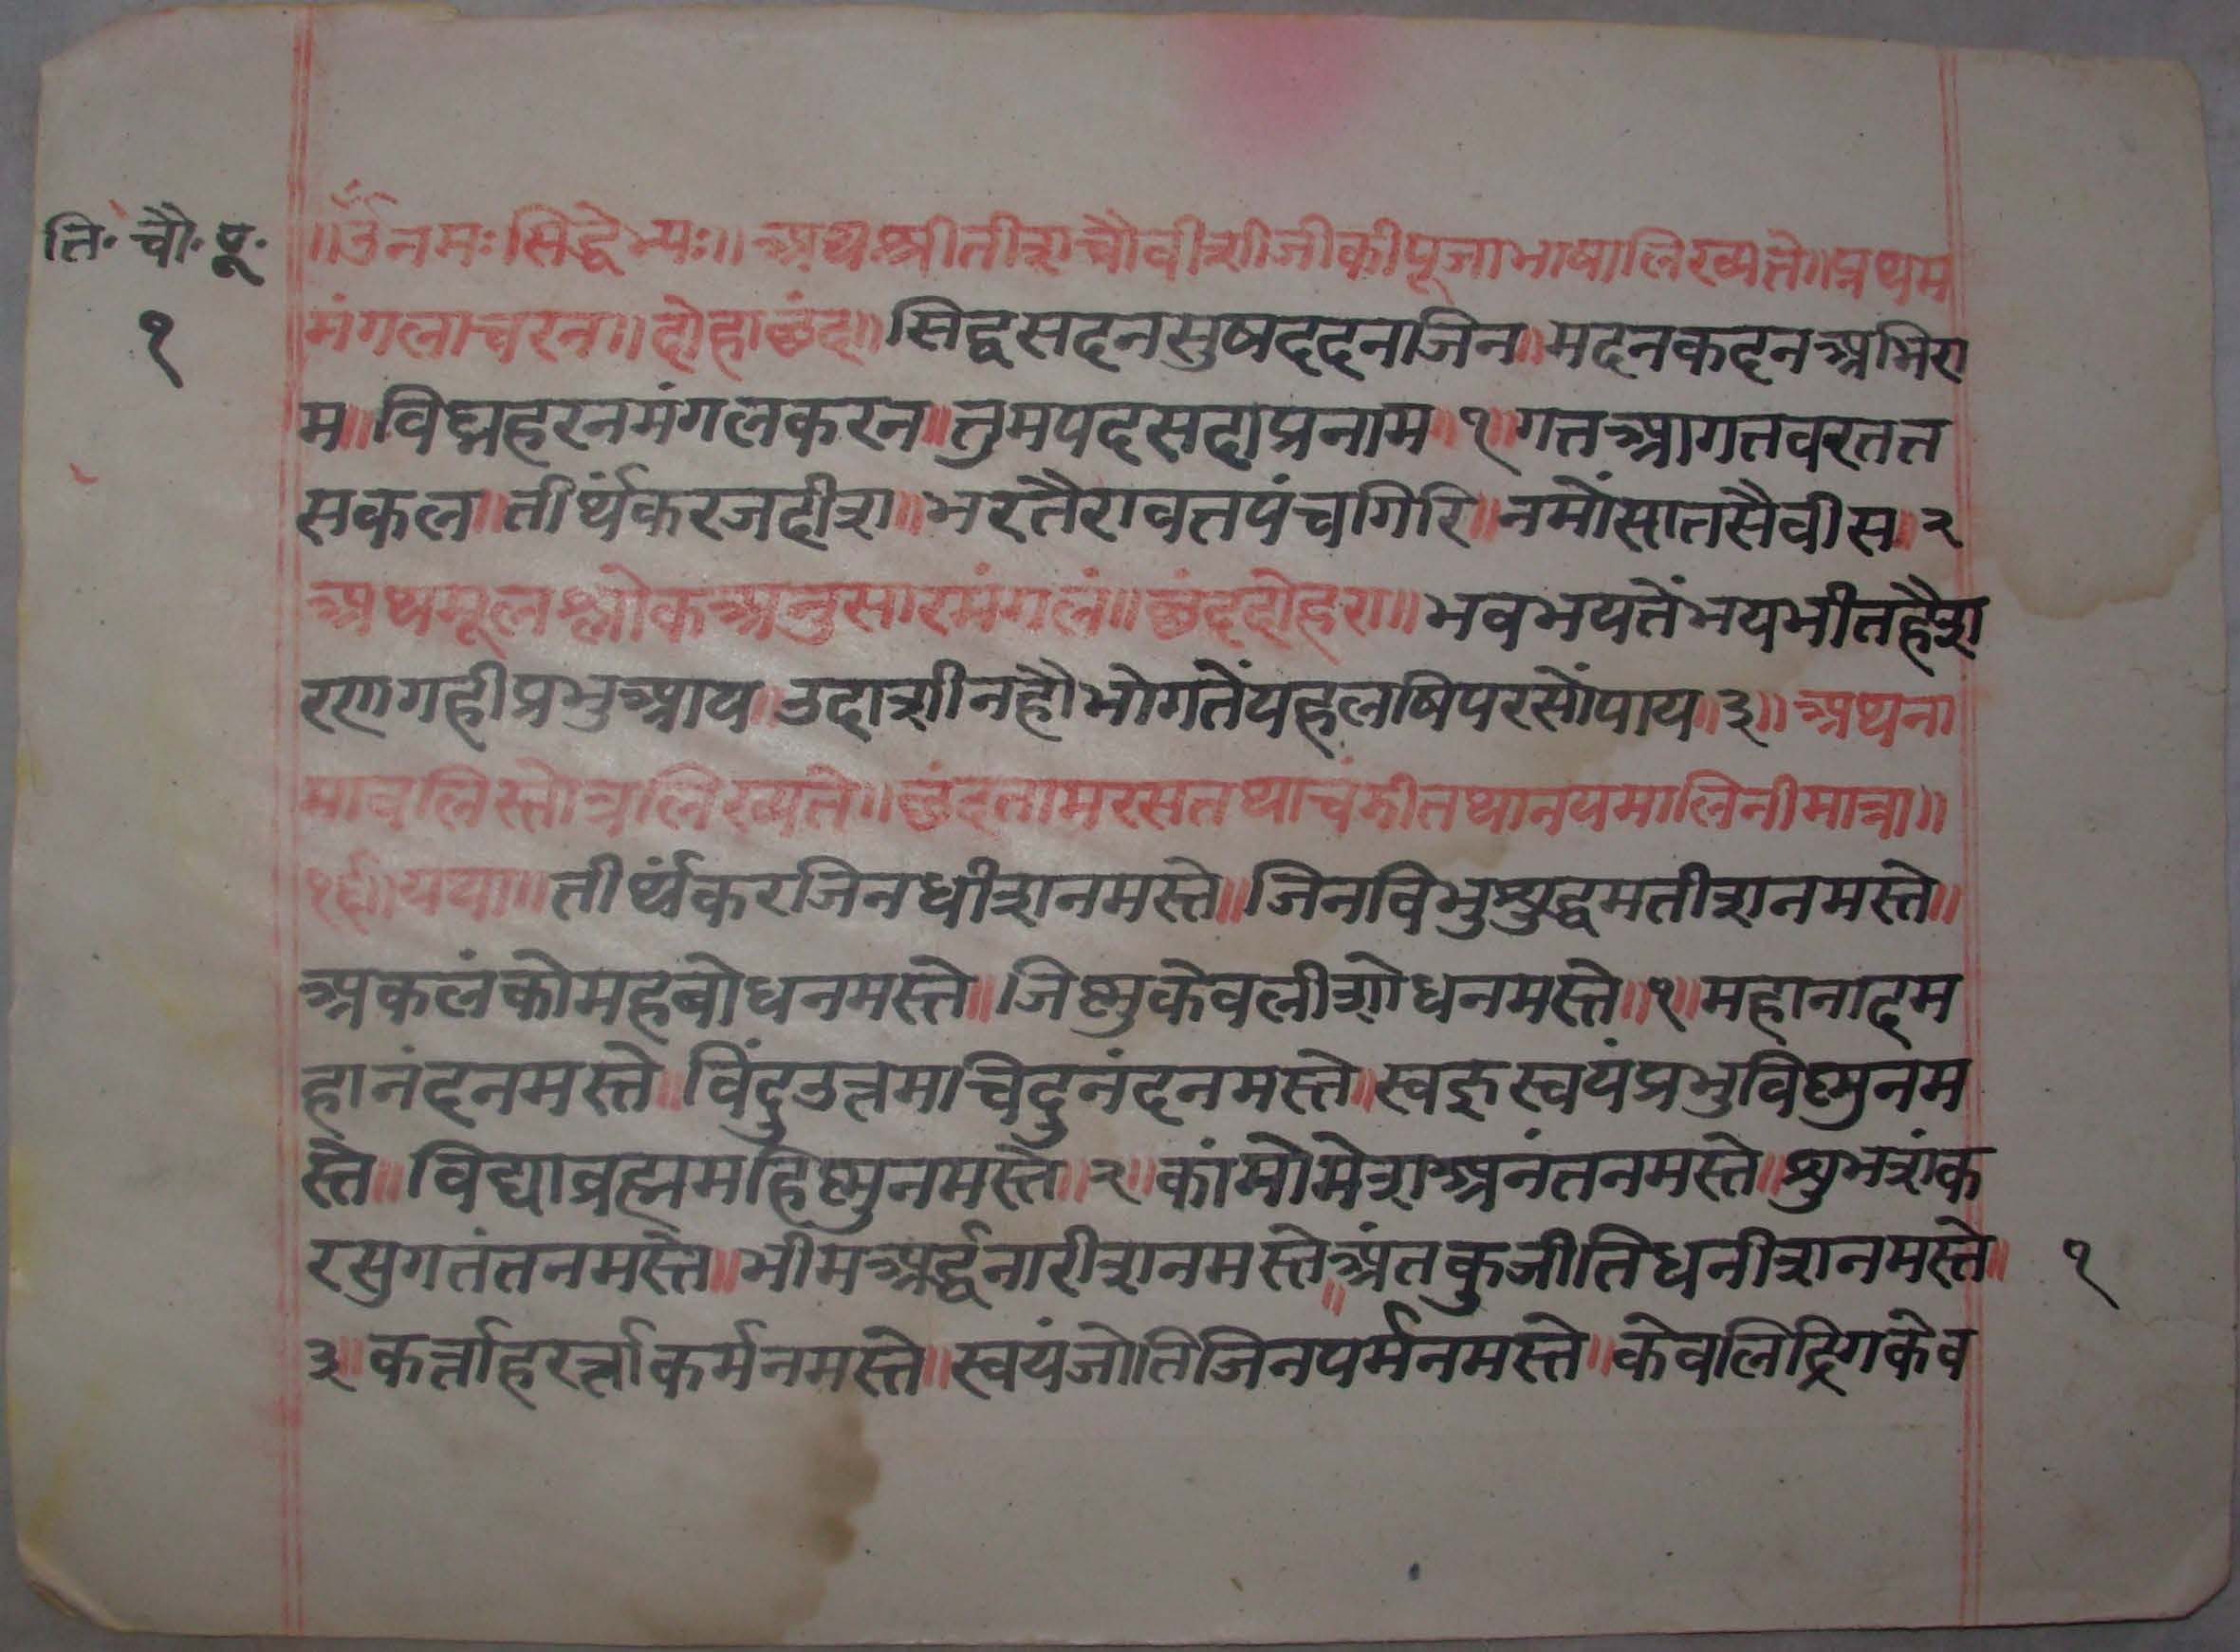 ति॰ चौ॰ पू॰
१
॥ॐनमःसिद्धेभ्यः॥ अथश्रीतीशचौवीशीजीकीपूजाभाषालिख्यते॥प्रथम
मंगलाचरन॥दोहाछंद॥सिद्धसदनसुषददनजिन॥मदनकदनअभिरा
म॥विघ्नहरनमंगलकरन॥तुमपदसदाप्रनाम॥१॥गतआगतवरतत
सकल॥तीर्थंकरजदीश॥भरतैरावतपंचगिरि॥नमोंसातसैवीस॥२
अथमूलश्लोकअनुसारमंगलं॥छंददोहरा॥भवभयतेंभयभीतहैश
रणगहीप्रभुआय॥उदाशीनहौभोगतेंयहलषिपरसोंपाय॥३॥अथना
मावलिस्तोत्रलिख्यते॥छंदतामरसतथाचंडीतथानयमालिनीमात्रा॥
तीर्थंकरजिनधीशनमस्ते॥जिनविभुशुद्धमतीशनमस्ते॥
अकलंकोमहबोधनमस्ते॥जिष्णुकेवलीशोधनमस्ते॥१॥महानादम
हानंदनमस्ते॥विंदुउत्तमाचिदुनंदनमस्ते॥स्वङ्गस्वयंप्रभुविष्णुनम
स्तै॥विद्याब्रह्ममहिष्णुनमस्तै॥२॥कांमोमेशअनंतनमस्ते॥शुभशंक
रसुगतंतनमस्ते॥भीमअर्द्धनारीशनमस्ते॥अंतकुजीतिधनीशनमस्ते॥
१
३॥कर्त्ताहर्त्ताकर्मनमस्ते॥स्वयंजोतिजिनपर्मनमस्ते॥केवलिद्रिगकेव